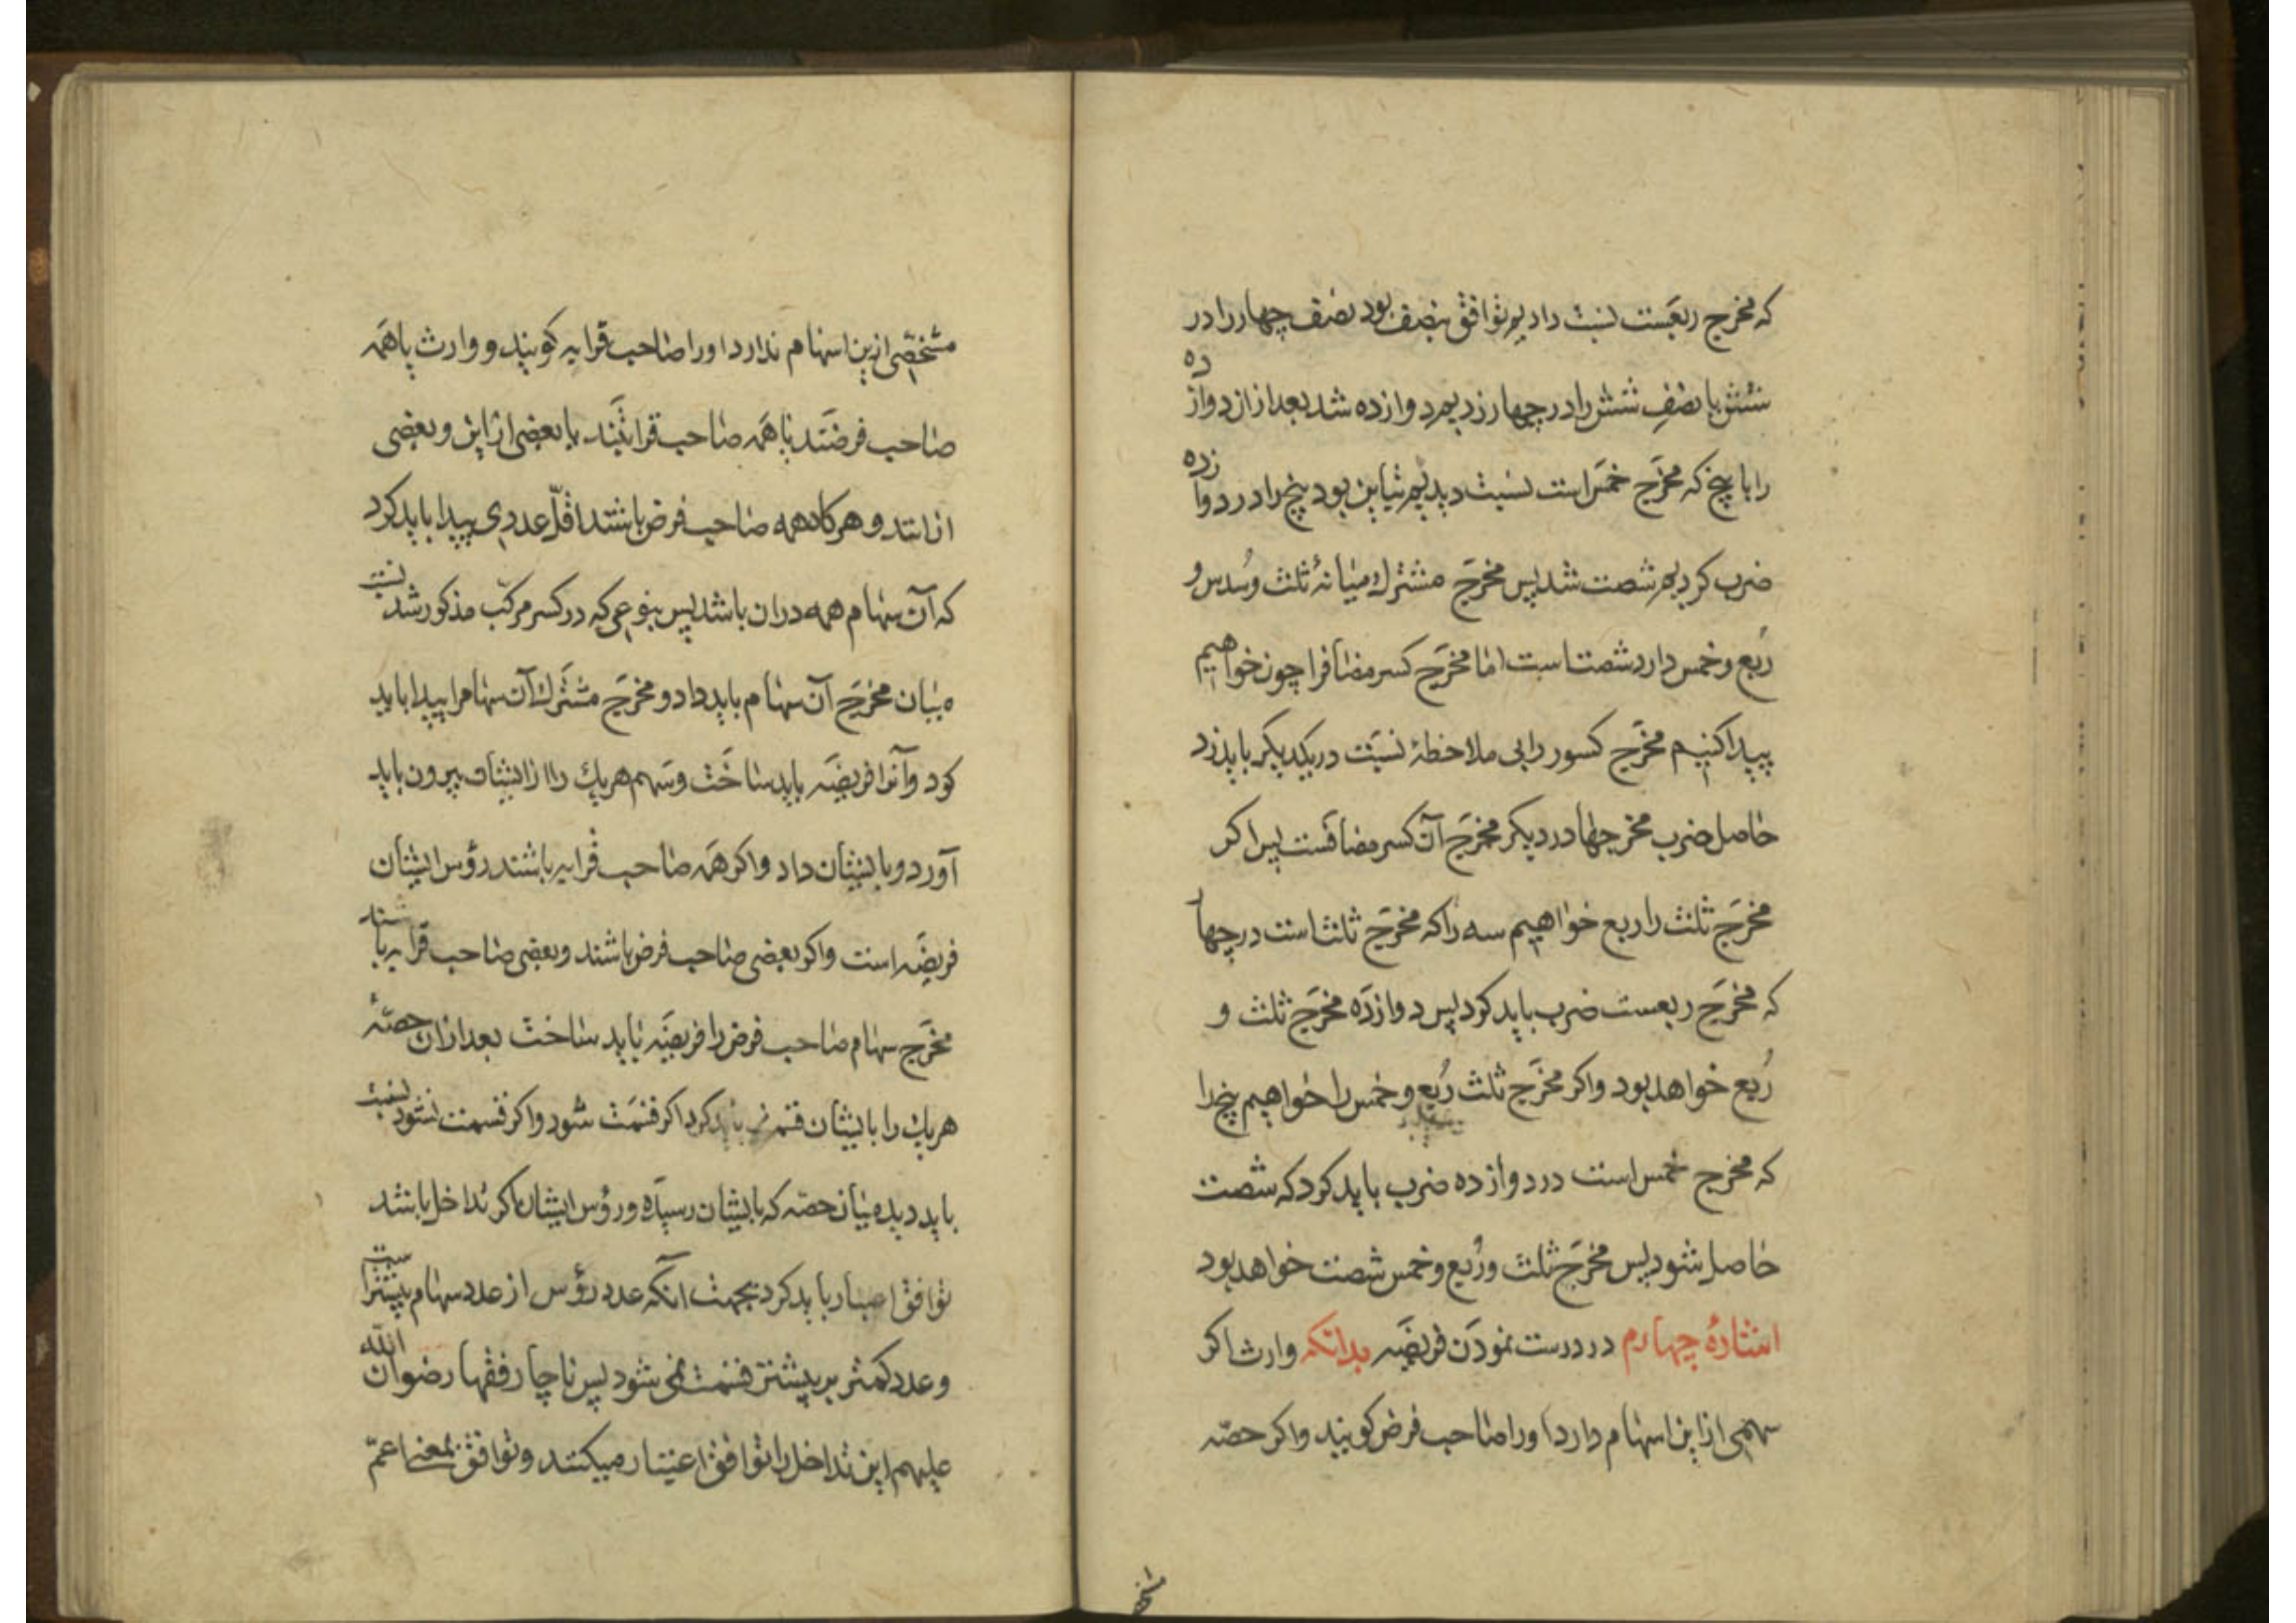 که مخرج ربعست نسبت دادیم توافق بنصف بود نصف چهار را در
شش یا نصفِ شش را در چهار زدیم دوازده شد بعد از ان دوازده
را با پنج که مخرَج خمَس است نسبت دیدیم تباین بود پنج را در دوازده
ضرب کردیم شصت شد پس مخرَج مشترك میانهٔ ثلث و سُدس و
رُبع و خمس دارد شصت است اما مخرَج کسر مضاف را چون خواهیم
پیدا کنیم مخرَج کسور را بی ملاحظهٔ نسبَت در یکدیکر باید زد
حاصل ضرب مخرجها در دیکر مخرَج آن کسر مضافست پس اکر
مخرَج ثلث را ربع خواهیم سه را که مخرَج ثلث است در چهار
که مخرَج ربعست ضرب باید کرد پس دوازدَه مخرَج ثلث و
رُبع خواهد بود و اکر مخرَج ثلث رُبع و خمس را خواهیم پنج را
که مخرج خمس است در دوازده ضرب باید کرد که شصت
حاصل شود پس مخرَج ثلث و رُبع و خمس شصت خواهد بود
اشارهٔ چهارم در درست نمودَن فریضَه بدانکه وارث اکر
سهمی از این اسهام دارد او را صاحب فرض کویند و اکر حصّه
مشخ
مشخّصی ازین اسهام ندارد او را صاحب قرابه کویند و وارث یا همَه
صاحب فرضَند یا همَه صاحب قرابتَند یا بعضی از این و بعضی
از انند و هرکاه همه صاحب فرض باشند اقلّ عددی پیدا باید کرد
که آن سهام همه دران باشد پس بنوعی که در کسر مرکّب مذکور شد نسبت
میان مخرَج آن سهام باید داد و مخرَج مشترَك آن سهام را پیدا باید
کرد و آنرا فریضَه باید ساخَت و سَهم هریك را از ایشان بیرون باید
آورد و بایشان داد و اکر همَه صاحب قرابه باشند رؤس ایشان
فریضَه است و اکر بعضی صاحب فرض باشند و بعضی صاحب قرابه باشند
مخرَج سهام صاحب فرض را فریضَه باید ساخت بعد ازان حصّهٔ
هریك را بایشان قسمت باید کرد اکر قسمَت شود و اکر قسمت نشود نسبت
باید دید میان حصّه که بایشان رسیدَه و رؤس ایشان اکر تداخل باشد
توافق اعتبار باید کرد بجهت آنکه عدد رؤس از عدد سهام بیشتر است
و عدد کمتر بر بیشتر قسمت نمی شود پس ناچار فقها رضوان الله
علیهم این تداخل را توافق اعتبار میکنند و توافق بمعنی اعمّ